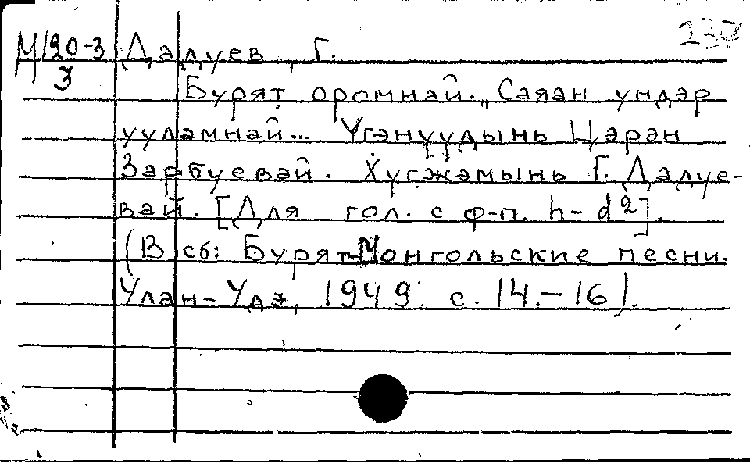 237
М120-3 Дадуев, Г.
3
Бурят оромнай. „Саяан ундэр
ууламнай... Үгэнүүдынь Цэрэн
Зарбуевай. Хүгжэмынь Г. Дадуе-
вай. [Для гол. с ф-п. h-d²].
(В сб: Бурят-Монгольские песни.
Улан-Удэ, 1949. с. 14.-16).